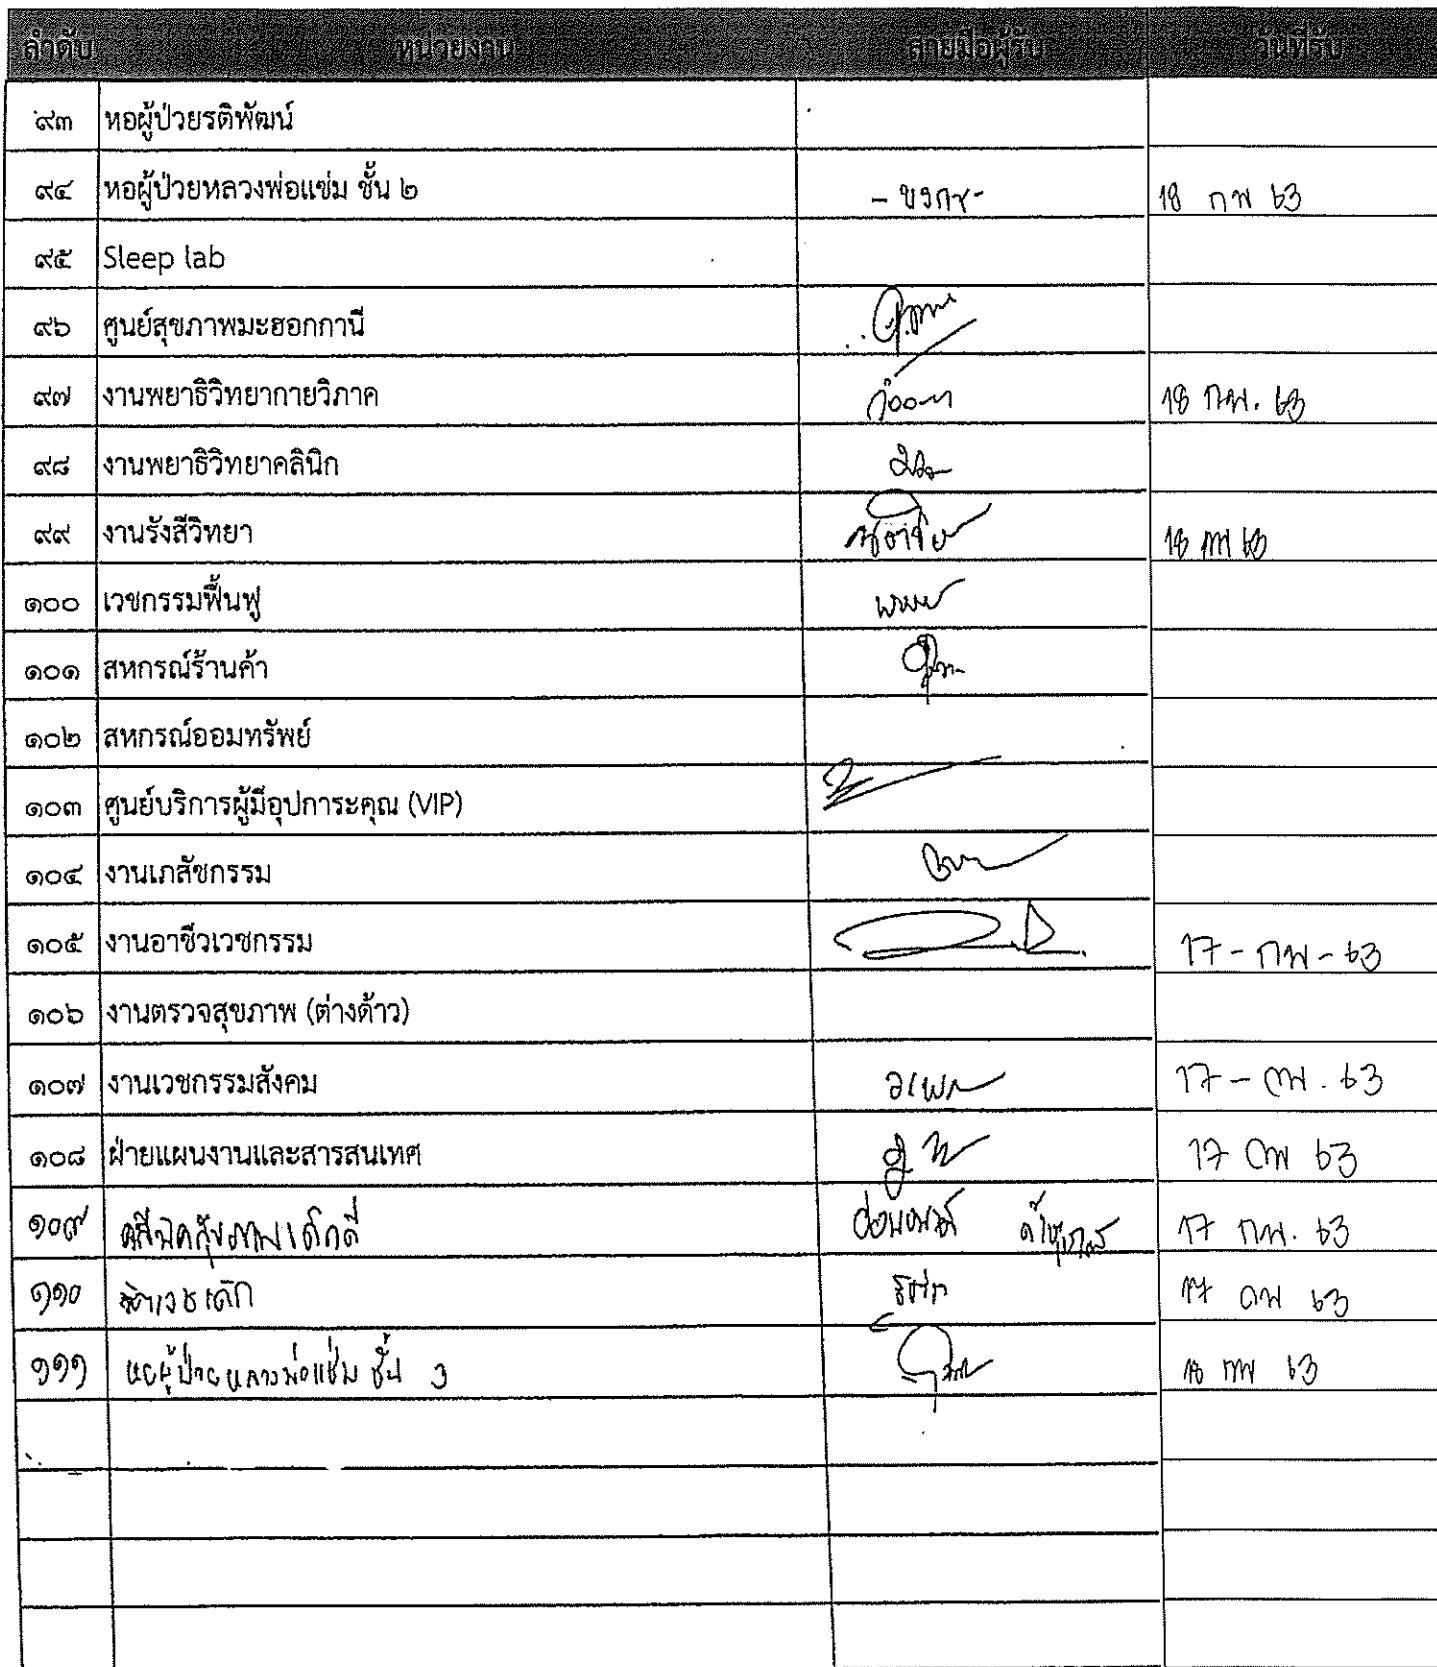 ลำดับ หน่วยงาน ลายมือผู้รับ วันที่รับ
๙๓ หอผู้ป่วยรติพัฒน์
๙๔ หอผู้ป่วยหลวงพ่อแช่ม ชั้น ๒ 18 กพ 63
๙๕ Sleep lab
๙๖ ศูนย์สุขภาพมะฮอกกานี
๙๗ งานพยาธิวิทยากายวิภาค 18 กพ. 63
๙๘ งานพยาธิวิทยาคลินิก
๙๙ งานรังสีวิทยา 18 กพ 63
๑๐๐ เวชกรรมฟื้นฟู
๑๐๑ สหกรณ์ร้านค้า
๑๐๒ สหกรณ์ออมทรัพย์
๑๐๓ ศูนย์บริการผู้มีอุปการะคุณ (VIP)
๑๐๔ งานเภสัชกรรม
๑๐๕ งานอาชีวเวชกรรม 17-กพ-63
๑๐๖ งานตรวจสุขภาพ (ต่างด้าว)
๑๐๗ งานเวชกรรมสังคม 17-กพ. 63
๑๐๘ ฝ่ายแผนงานและสารสนเทศ 17 กพ 63
๑๐๙ คลีนิคสุขภาพเด็กดี 17 กพ. 63
๑๑๐ จิตเวชเด็ก 17 กพ 63
๑๑๑ หอผู้ป่วยหลวงพ่อแช่ม ชั้น ๓ 18 กพ 63